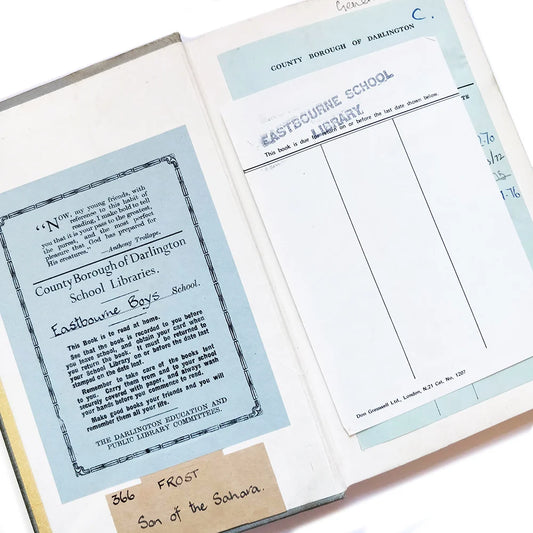 "NOW, my young friends, with
reference to this habit of
reading, I make bold to tell
you that it is your pass to the greatest,
the purest, and the most perfect
pleasure that God has prepared for
His creatures."
—Anthony Trollope.
County Borough of Darlington
School Libraries.
Eastbourne Boys School.
This Book is to read at home.
See that the book is recorded to you before
you leave school, and obtain your card when
you return the book. It must be returned to
your School Library on or before the date last
stamped on the date leaf.
Remember to take care of the books lent
to you. Carry them from and to your school
securely covered with paper, and always wash
your hands before you commence to read.
Make good books your friends and you will
remember them all your life.
THE DARLINGTON EDUCATION AND
PUBLIC LIBRARY COMMITTEES.
366 FROST
Son of the Sahara.
C.
COUNTY BOROUGH OF DARLINGTON
EASTBOURNE SCHOOL
LIBRARY
This book is due for return on or before the last date shown below.
TE
-70
/72
-76
Don Gresswell Ltd., London, N.21 Cat. No. 1207